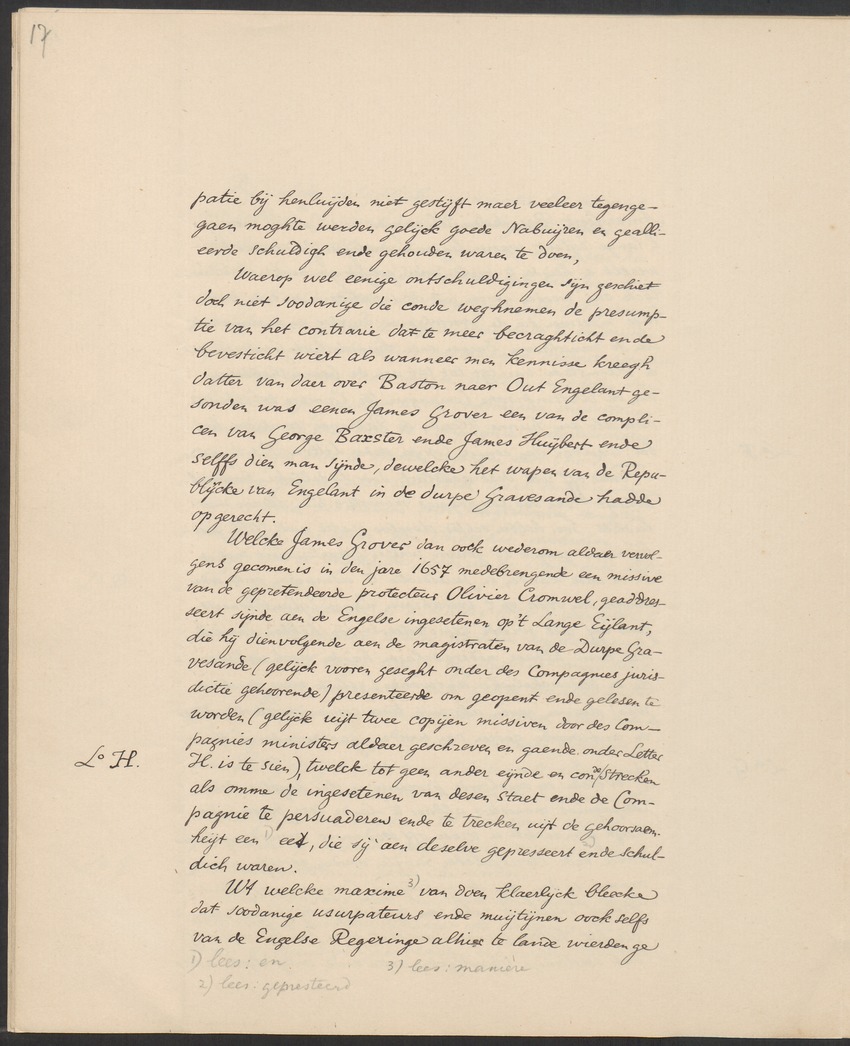 17
patie bij henluijden niet gestijft maer veeleer tegenge-
gaen moghte werden gelijck goede Nabuijren en gealli-
eerde schuldigh ende gehouden waren te doen,
Waerop wel eenige ontschuldigingen sijn geschiet
doch niet soodanige die conde weghnemen de presump-
tie van het contrarie dat te meer becraghticht ende
bevesticht wiert als wanneer men kennisse kreegh
datter van daer over Baston naer Out Engelant ge-
sonden was eenen James Grover een van de compli-
cen van George Baxster ende James Huijbert ende
selffs dien man sijnde, dewelcke het wapen van de Repu-
blijcke van Engelant in de durpe Gravesande hadde
opgerecht.
Welcke James Grover dan oock wederom aldaer vervol-
gens gecomen is in den jare 1657 medebrengende een missive
van de gepretendeerde protecteur Olivier Cromwel, geaddres-
seert sijnde aen de Engelse ingesetenen op't Lange Eijlant,
die hij dienvolgende aen de magistraten van de Durpe Gra-
vesande (gelijck vooren geseght onder des Compagnies juris-
dictie gehoorende) presenteerde om geopent ende gelesen te
worden (gelijck uijt twee copijen missiven door des Com-
pagnies ministers aldaer geschreven en gaende onder Letter
Lo H.
H. is te sien), twelck tot geen ander eijnde en conde strecken
als omme de ingesetenen van desen Staet ende de Com-
pagnie te persuaderen ende te trecken uijt de gehoorsaem-
heijt een 1) eed, die sij aen deselve gepresseert 2) ende schul-
dich waren.
Uit welcke maxime 3) van doen klaerlijck bleecke
dat soodanige usurpateurs ende muijtijnen oock selfs
van de Engelse Regeringe alhier te lande wierden ge
1) lees: en.
3) lees: manière
2) lees: gepresteerd